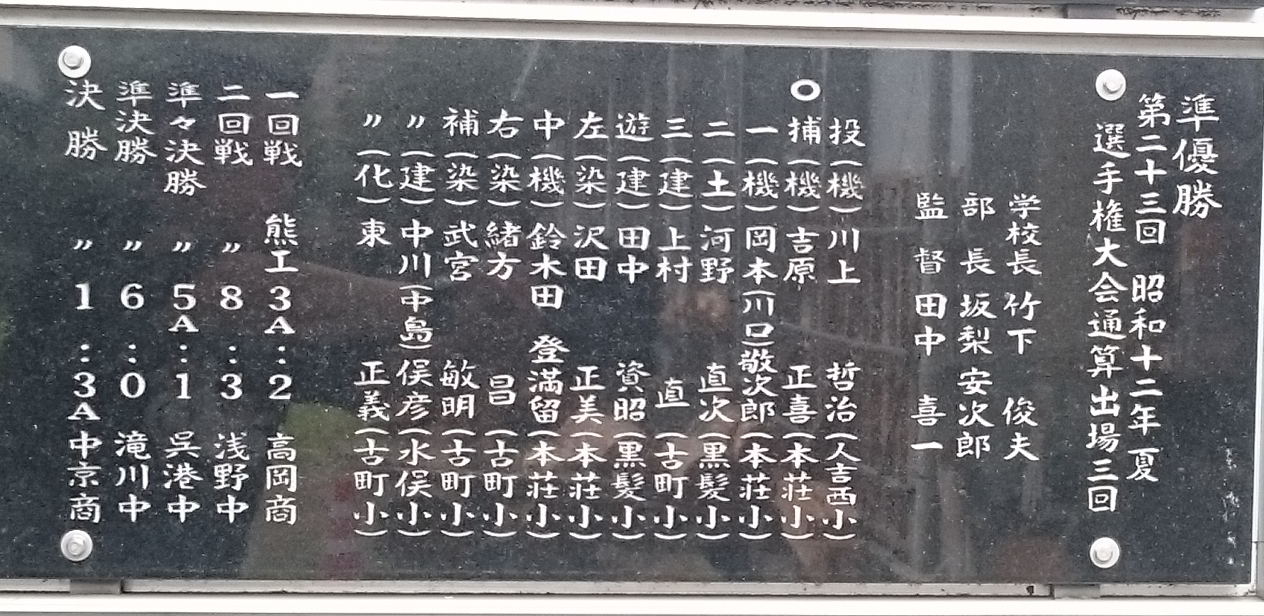 準優勝
第二十三回 昭和十二年夏
選手権大会通算出場三回
学校長 竹下 俊夫
部長 坂梨 安次郎
監督 田中 喜一
投(機)川上 哲治(人吉西小)
捕(機)吉原 正喜(本荘小)
一(機)岡本(川口)敬次郎(本荘小)
二(土)河野 直次(黒髪小)
三(建)上村 直(古町小)
遊(建)田中 資昭(黒髪小)
左(染)沢田 正美(本荘小)
中(機)鈴木田 登満留(本荘小)
右(染)緒方 昌(古町小)
補(染)武宮 敏明(古町小)
〃(建)中川(中島)俣彦(水俣小)
〃(化)東 正義(古町小)
一回戦 熊工3A:2 高岡商
二回戦 〃 8:3 浅野中
準々決勝 〃 5A:1 呉港中
準決勝 〃 6:0 滝川中
決勝 〃 1:3A 中京商